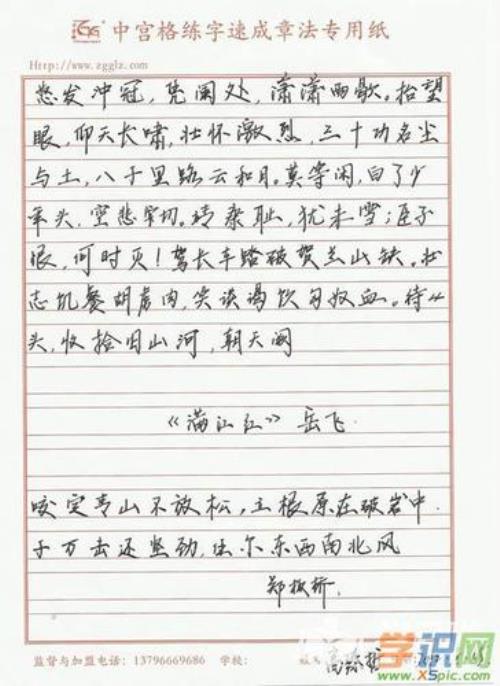 中宫格练字速成章法专用纸
Http://www.zgglz.com
怒发冲冠，凭阑处，潇潇雨歇。抬望
眼，仰天长啸，壮怀激烈，三十功名尘
与土，八千里路云和月。莫等闲，白了少
年头，空悲切。靖康耻，犹未雪；臣子
恨，何时灭！驾长车踏破贺兰山缺。壮
志饥餐胡虏肉，笑谈渴饮匈奴血。待从
头，收拾旧山河，朝天阙
《满江红》岳飞
咬定青山不放松，立根原在破岩中.
千万击还坚劲，任尔东西南北风
郑板桥.
监督与加盟电话：13796669686 学校：
学识网
www.X5pic.com